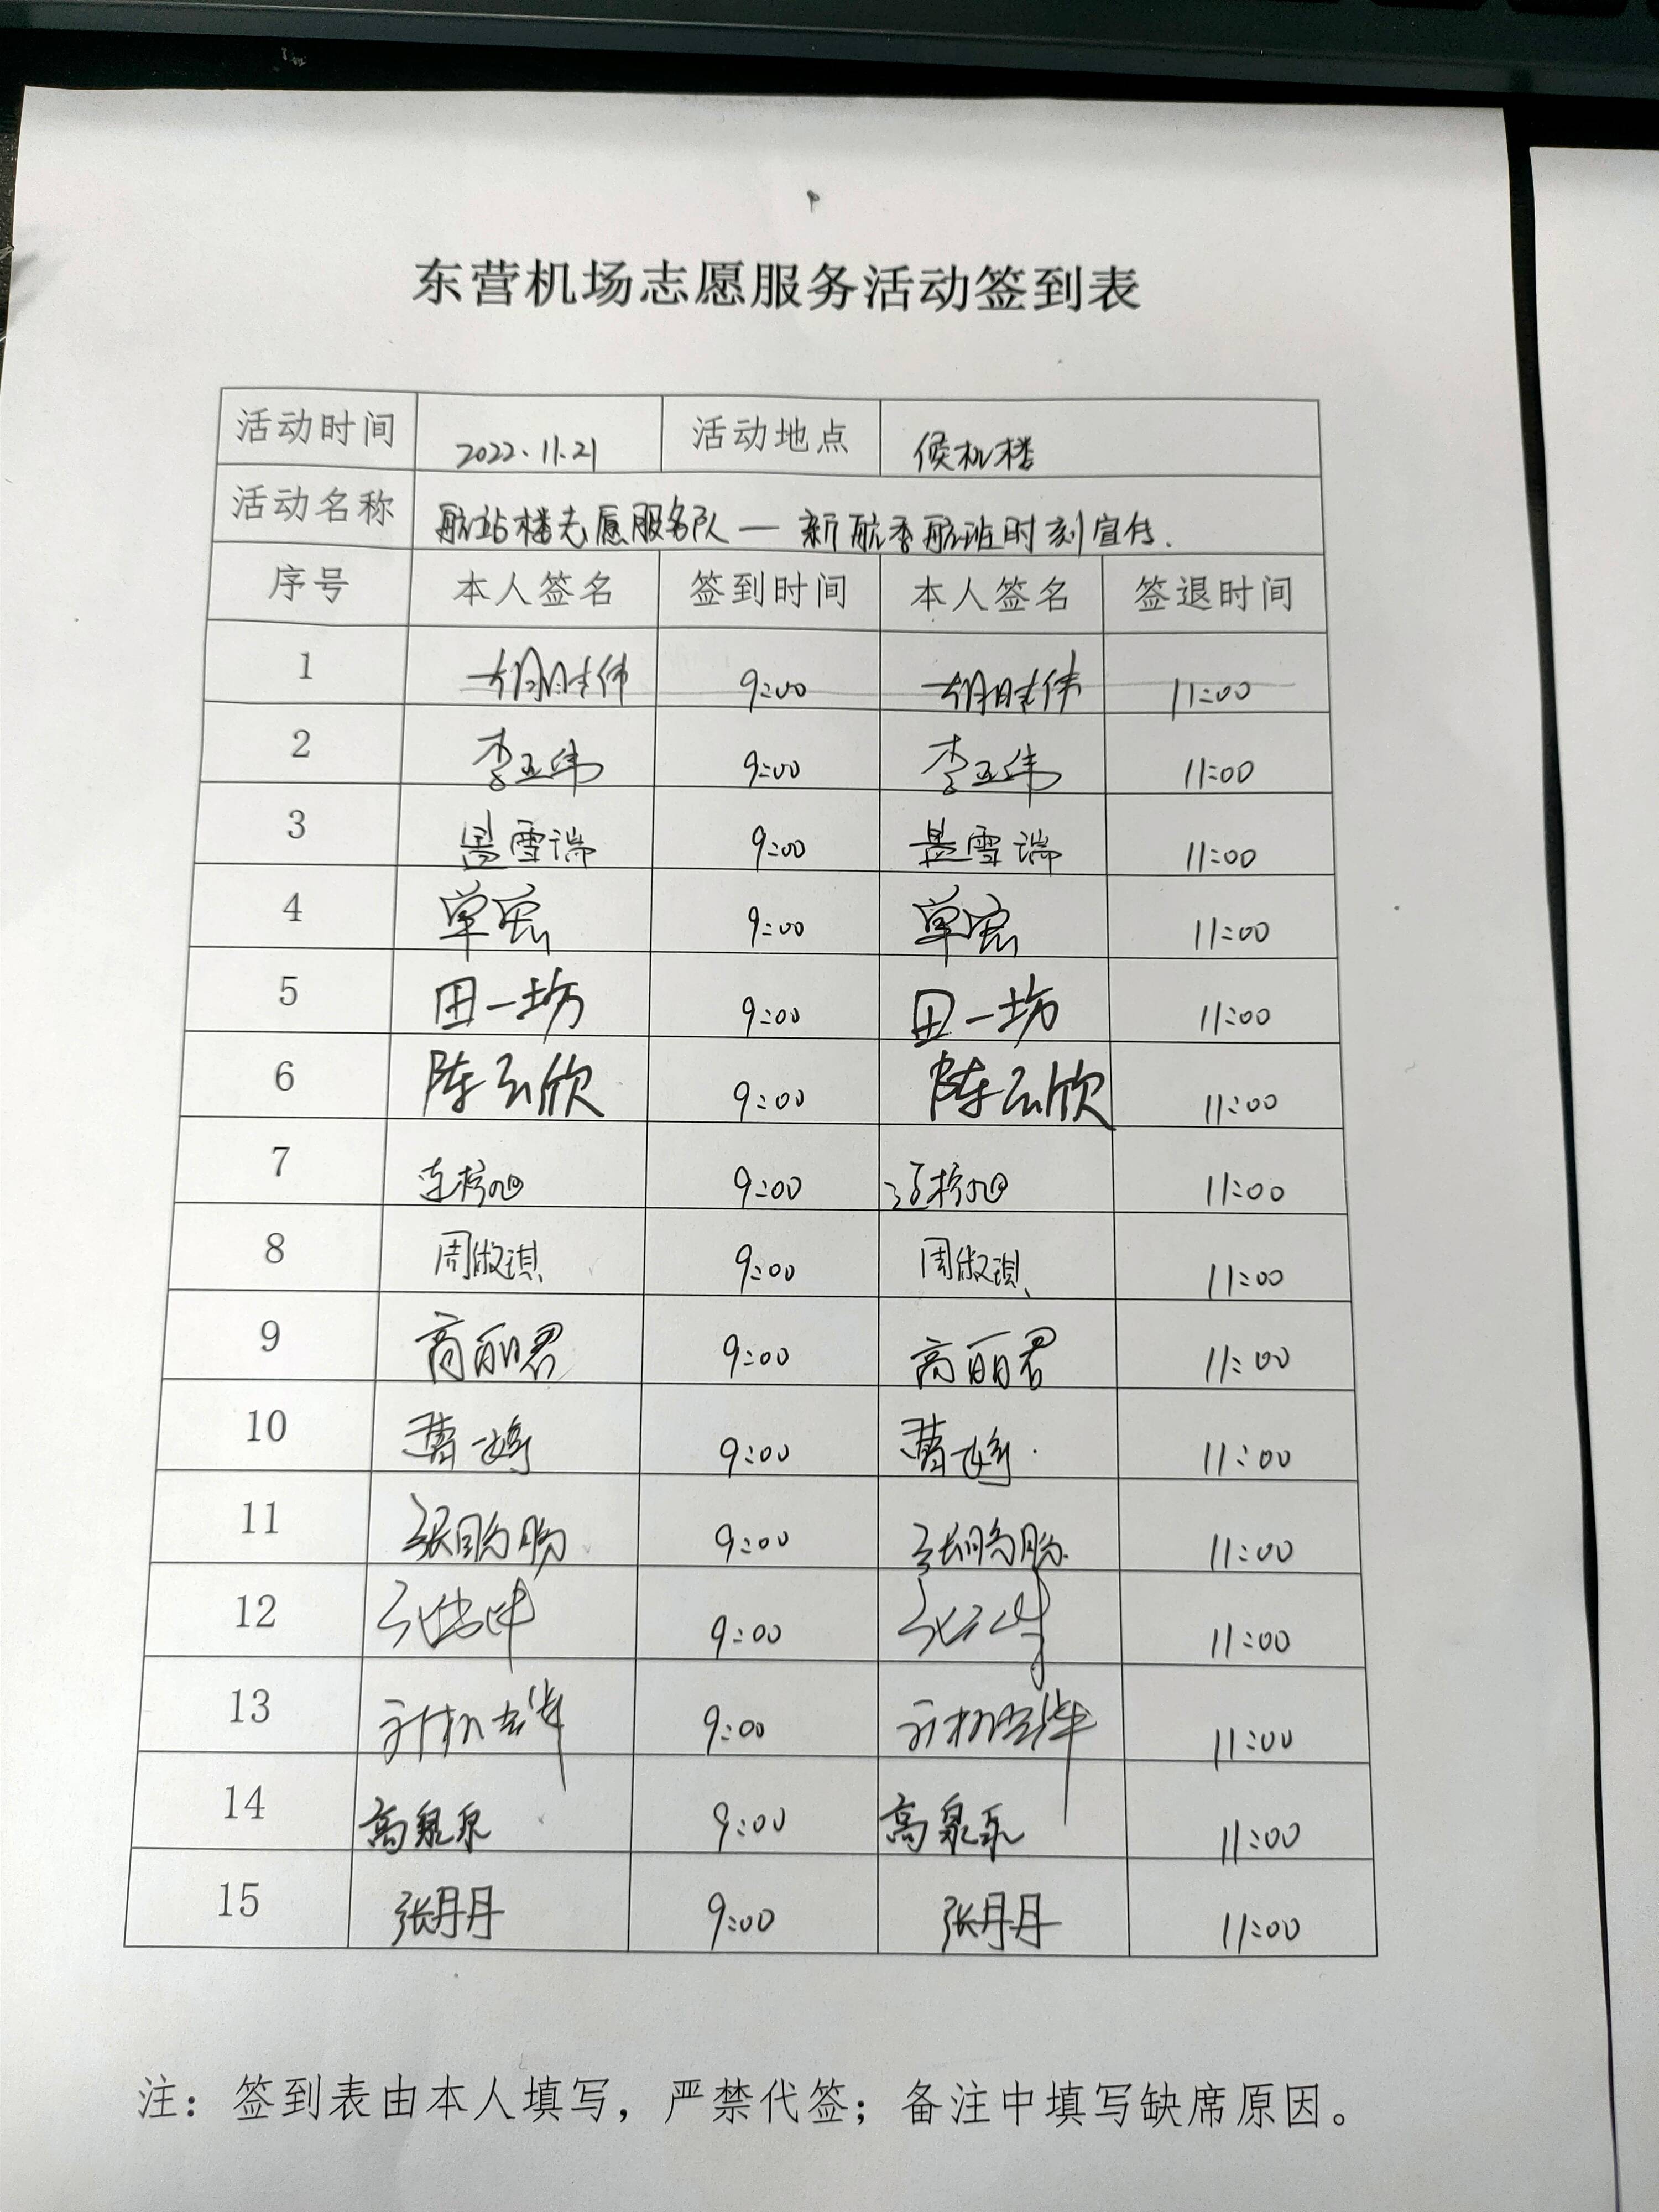 东营机场志愿服务活动签到表
活动时间 2022.11.21 活动地点 候机楼
活动名称 航站楼志愿服务队—新航季航班时刻宣传.
序号 本人签名 签到时间 本人签名 签退时间
1 9:00 11:00
2 李亚伟 9:00 李亚伟 11:00
3 雪瑞 9:00 雪瑞 11:00
4 单宏 9:00 单宏 11:00
5 田一坊 9:00 田一坊 11:00
6 陈云欣 9:00 陈云欣 11:00
7 9:00 11:00
8 周淑琪 9:00 周淑琪 11:00
9 高丽君 9:00 高丽君 11:00
10 曹婷 9:00 曹婷 11:00
11 张盼盼 9:00 张盼盼 11:00
12 9:00 11:00
13 9:00 11:00
14 高泉泉 9:00 高泉泉 11:00
15 张丹丹 9:00 张丹丹 11:00
注：签到表由本人填写，严禁代签；备注中填写缺席原因。